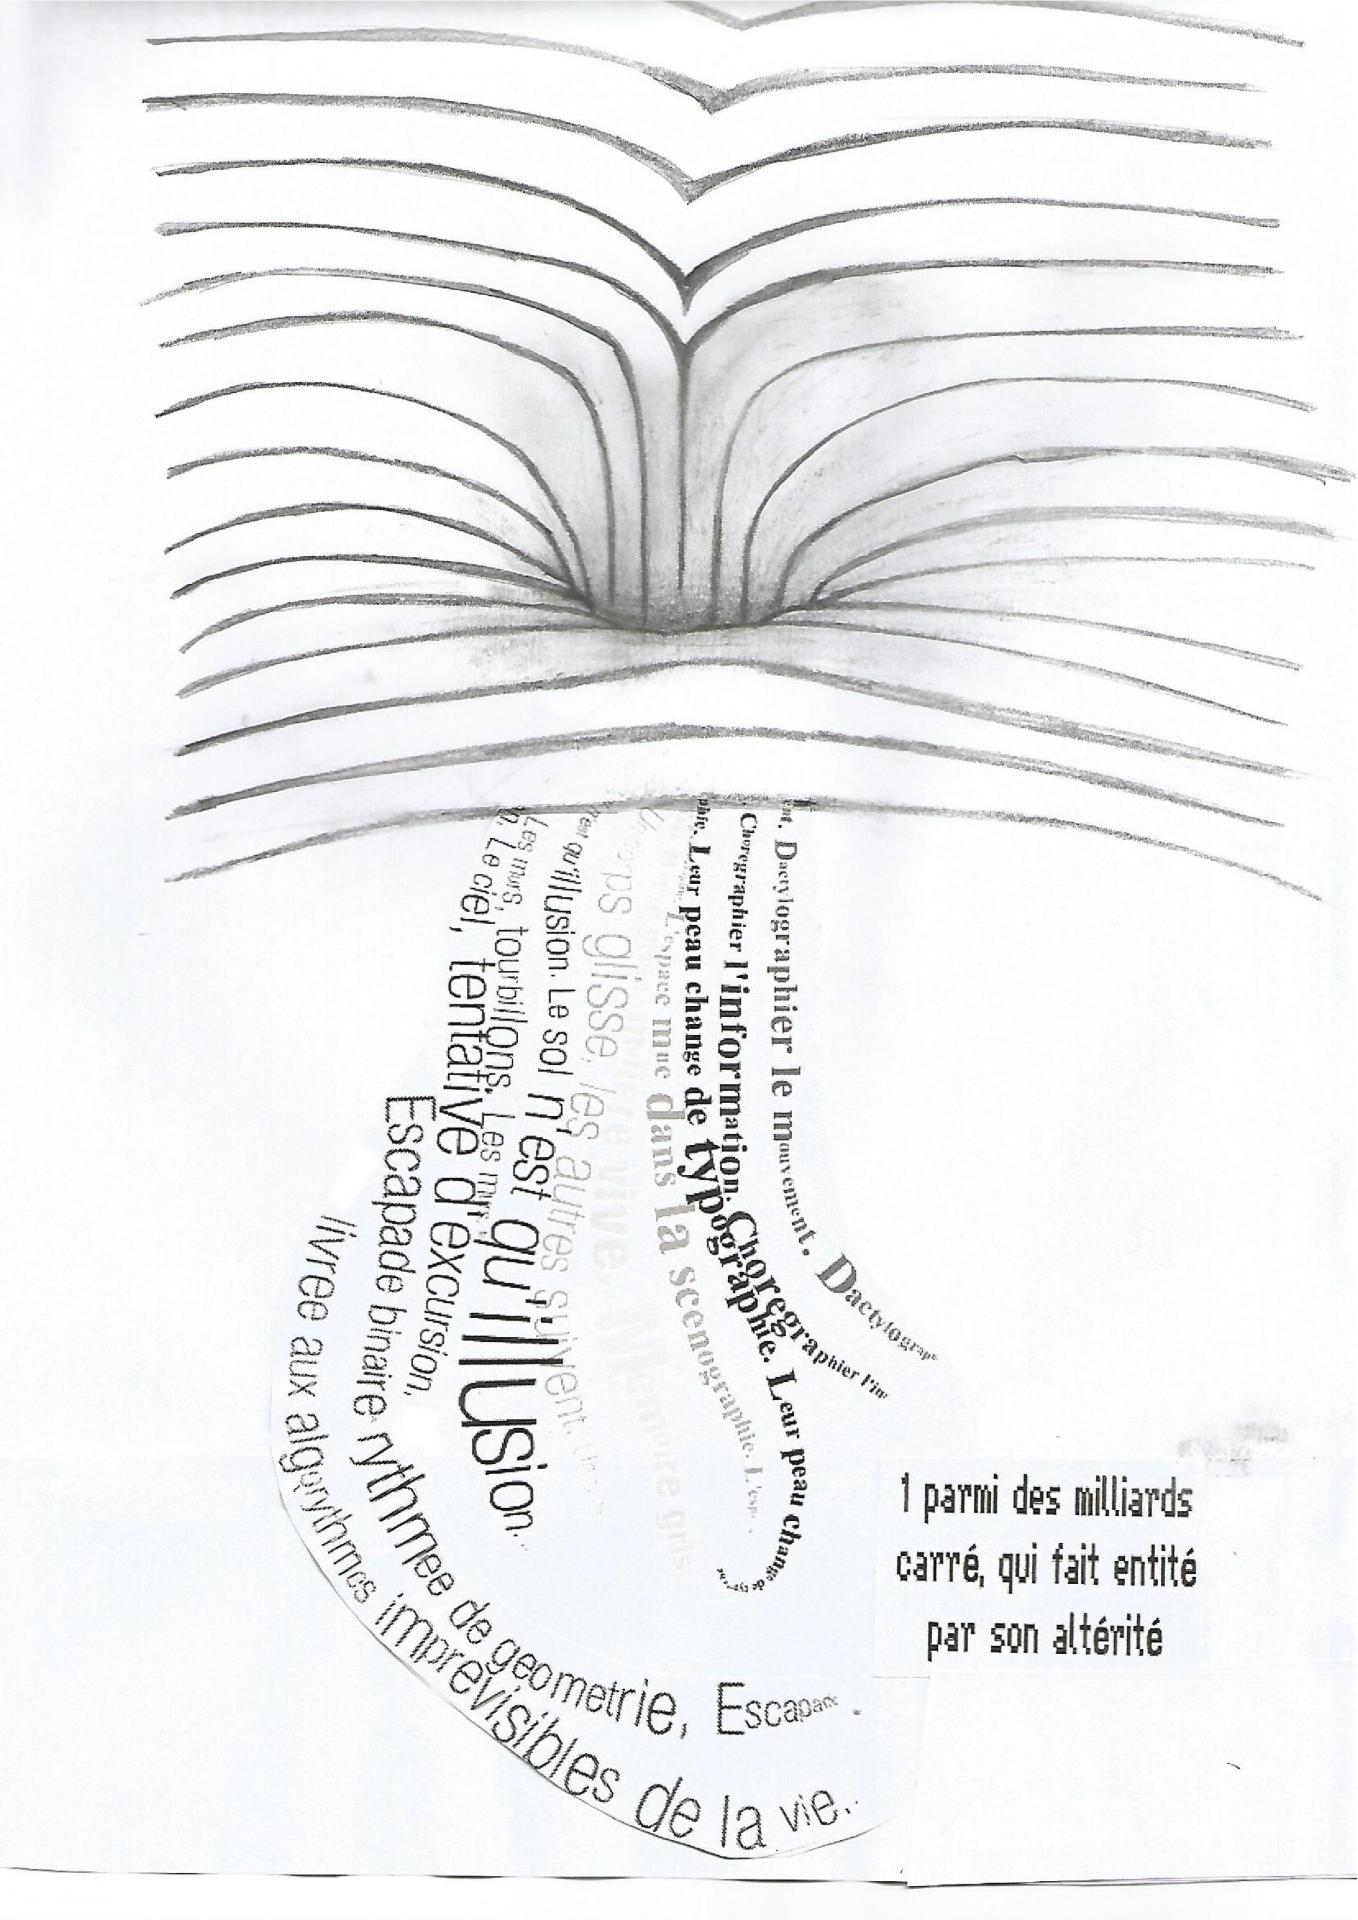 n. Le ciel, tentative d'excursion,
Les murs, tourbillons. Les murs,
n'est qu'illusion. Le sol n'est qu'illusion.
Un corps glisse, les autres suivent,
vive. Memoire gris
L'espace mue dans la scenographie. L'esp
phie. Leur peau change de typographie. Leur peau change de typ
. Choregraphier l'information. Choregraphier l'inf
nt. Dactylographier le mouvement. Dactylograp
Escapade binaire rythmee de geometrie, Escapade
livree aux algorythmes imprevisibles de la vie..
1 parmi des milliards
carré, qui fait entité
par son altérité